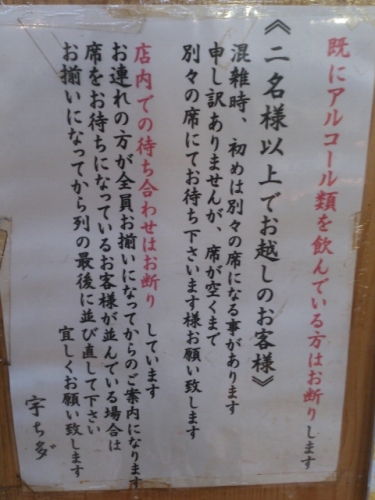 既にアルコール類を飲んでいる方はお断りします
《二名様以上でお越しのお客様》
混雑時、初めは別々の席になる事があります
申し訳ありませんが、席が空くまで
別々の席にてお待ち下さいます様お願い致します
店内での待ち合わせはお断りしています
お連れの方が全員お揃いになってからのご案内になります
席をお待ちになっているお客様が並んでいる場合は
お揃いになってから列の最後に並び直して下さい
宜しくお願い致します
宇ち多゛